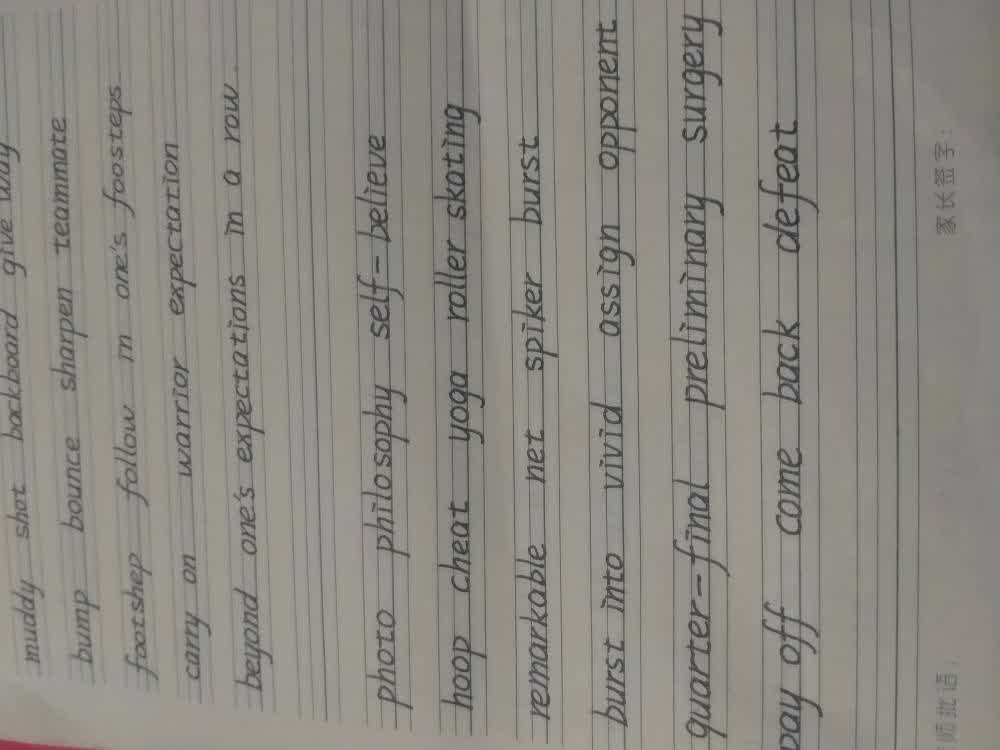 muddy shot backboard give way
bump bounce sharpen teammate
footshep follow in one's foosteps
carry on warrior expectation
beyond one's expectations in a row
photo philosophy self-believe
hoop cheat yoga roller skating
remarkable net spiker burst
burst into vivid assign opponent
quarter-final preliminary surgery
pay off come back defeat
师批语: 家长签字: